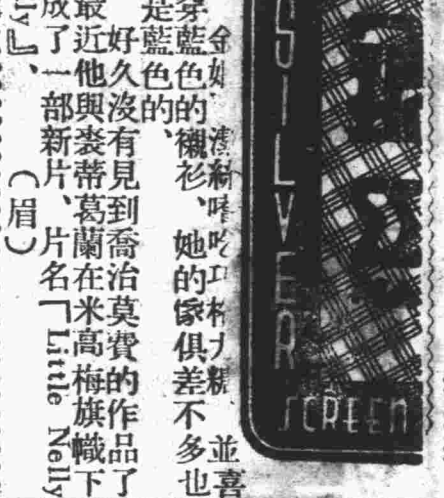 SILVER
SCREEN
金 嗜吃巧格力糖、並喜
穿藍色的襯衫、她的傢俱差不多也
是藍色的、
好久沒有見到喬治莫費的作品了
最近他與裘蒂葛蘭在米高梅旗幟下
成了一部新片、片名「Little Nelly
lly」、（眉）